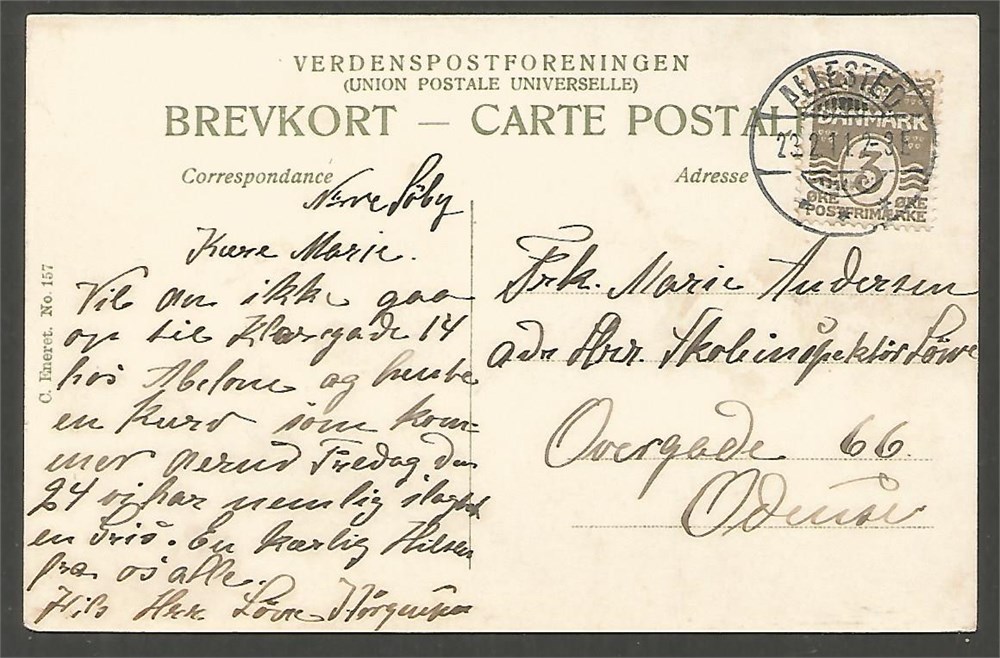 VERDENSPOSTFORENINGEN
(UNION POSTALE UNIVERSELLE)
BREVKORT — CARTE POSTAL
Correspondance
Adresse
ALLESTED
23.2.11. 2-3 E
DANMARK
3
ØRE ØRE
POSTFRIMÆRKE
C. Eneret. No. 157
Nørre Søby
Kære Marie.
Vil du ikke gaa
op til Klaregade 14
hos Abelone og hente
en Kurv som kom-
mer derind Fredag den
24 vi har nemlig slagtet
en Gris. En kærlig Hilsen
fra os alle.
Hils Herr Løve
Frk. Marie Andersen
adr Hrr. Skoleinspektör Löwe
Overgade 66.
Odense